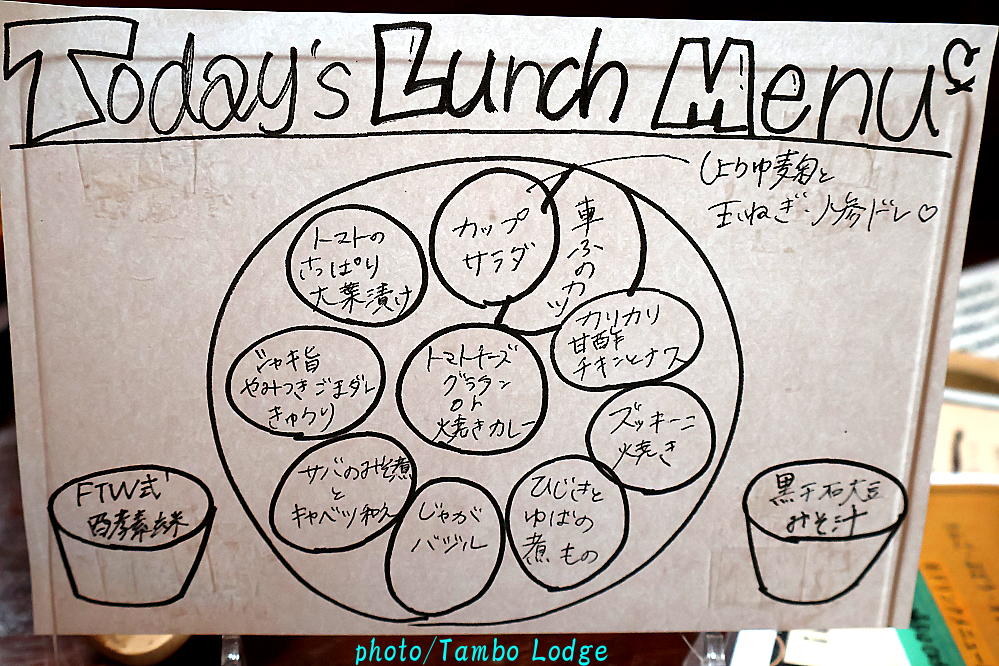 Today's Lunch Menu
しょうゆ麦麹と
玉ねぎ・人参ドレ♡
カップ
サラダ
車ふのカツ
トマトの
さっぱり
大葉漬け
カリカリ
甘酢
チキンとナス
シャキ旨
やみつきごまダレ
きゅうり
トマトチーズ
グラタン
or
焼きカレー
ズッキーニ
焼き
サバのみそ煮
と
キャベツ和え
じゃが
バジル
ひじきと
ゆばの
煮もの
FTW式
酵素玄米
黒千石大豆
みそ汁
photo/Tambo Lodge